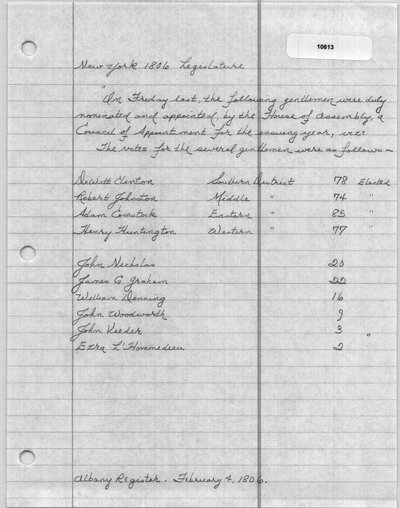 10613
New York 1806 Legislature
"On Friday last, the following gentlemen were duly
nominated and appointed, by the House of Assembly, a
Council of Appointment for the ensuing year, viz:
The votes for the several gentlemen were as follows—
DeWitt Clinton Southern District 78 Elected
Robert Johnston Middle " 74 "
Adam Comstock Eastern " 85 "
Henry Huntington Western " 77 "
John Nicholas 20
James G. Graham 22
William Denning 16
John Woodworth 9
John Veeder 3 "
Ezra L'Hommedieu 2
Albany Register. February 4, 1806.